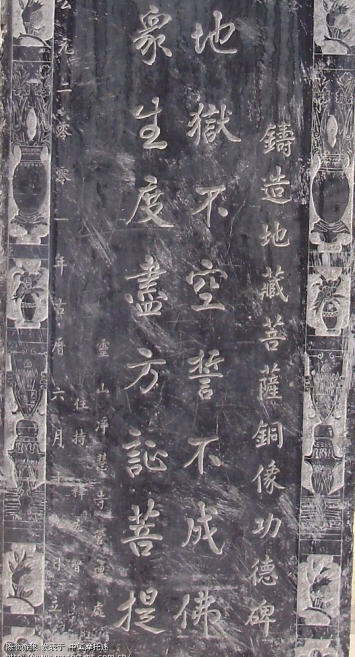 鑄造地藏菩薩銅像功德碑
地獄不空誓不成佛
眾生度盡方証菩提
靈山淨慧寺
住持釋
公元二零零一年古曆六月日立